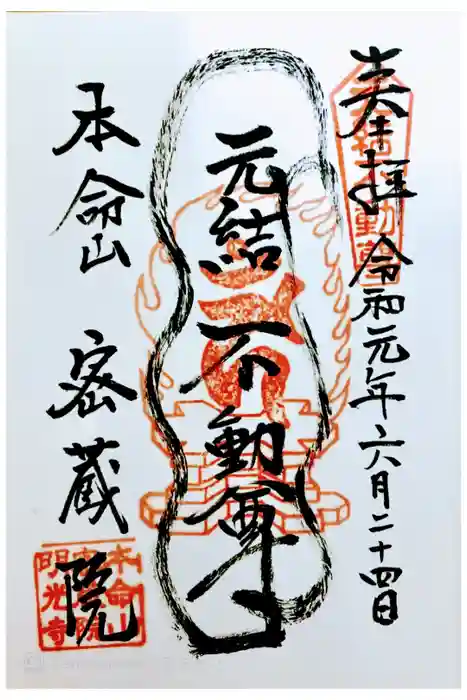 奉拝 令和元年六月二十四日
元結不動尊
本命山 密蔵院
本命山
密蔵院
明光寺